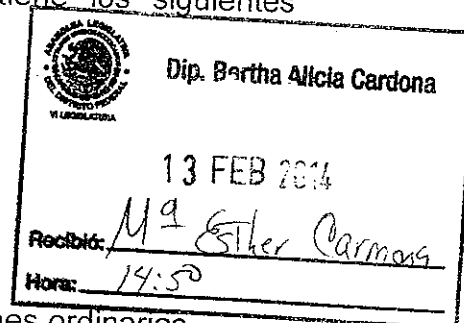 tiene los siguientes
ASAMBLEA LEGISLATIVA
DEL DISTRITO FEDERAL
VI LEGISLATURA
Dip. Bertha Alicia Cardona
13 FEB 2014
Recibió: Mª Esther Carmona
Hora: 14:50
nes ordinarios